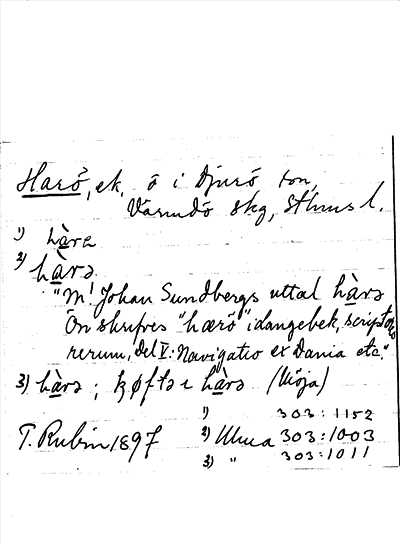 Harö, ek. ö i Djurö, sn,
Värmdö skg, Sthms l.
1) hàra
2) hàrə
"M! Johan Sundbergs uttal hàrə
Ön skrifves "hærö" i Langebek, scriptores
rerum, Del V: Navigatio ex Dania etc."
3) hàrə ; hàrə (Möja)
T. Rubin 1897
1) 303:1152
2) Ulma 303:1003
3) " 303:1011